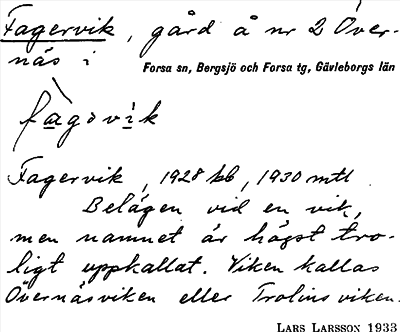 Fagervik, gård å nr 2 Över-
näs i
Forsa sn, Bergsjö och Forsa tg, Gävleborgs län
fàgovìk
Fagervik, 1928 kb, 1930 mtl
Belägen vid en vik,
men namnet är högst tro-
ligt uppkallat. Viken kallas
Övernäsviken eller Trolins viken.
LARS LARSSON 1933